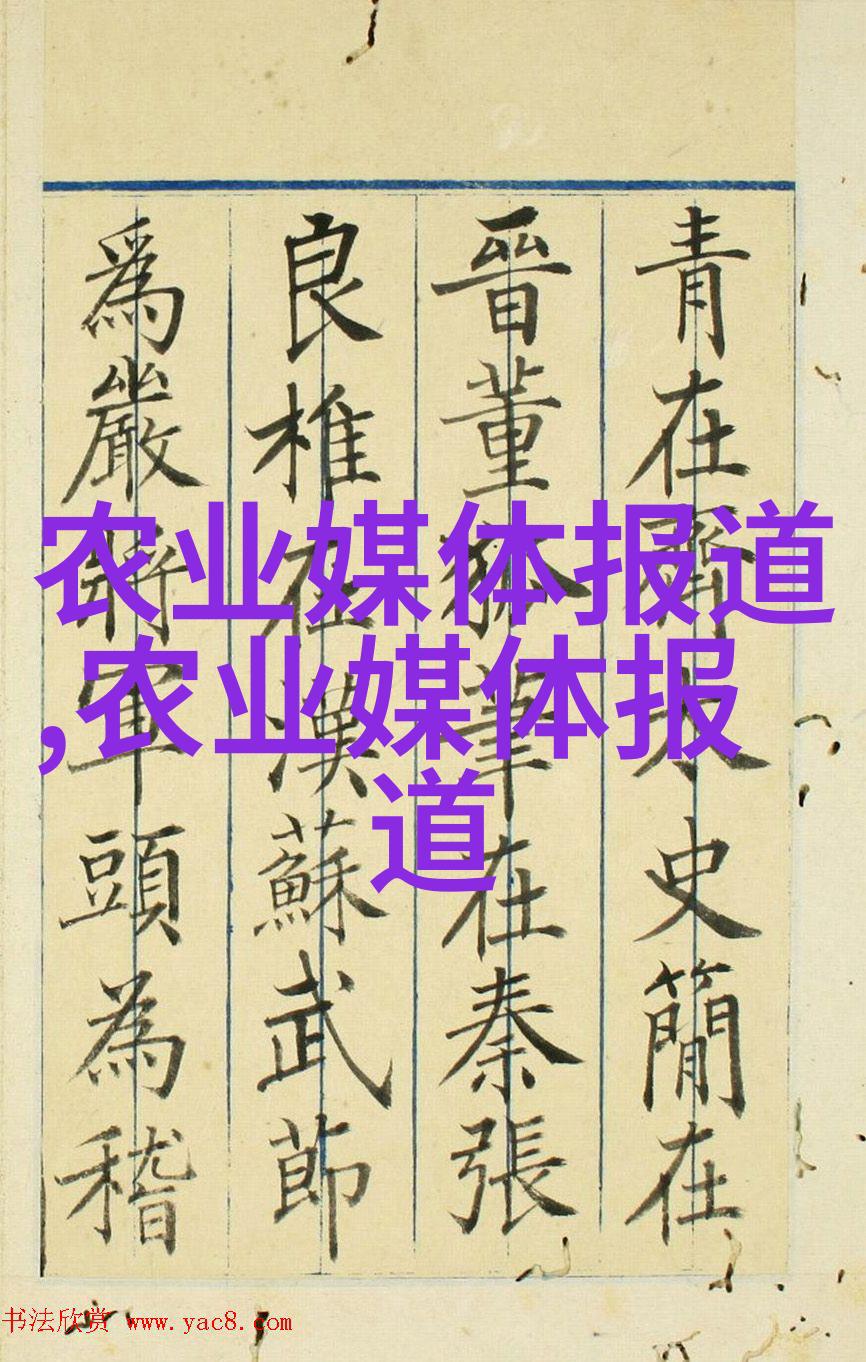 青在齊太史簡在
晉董狐筆在秦張
良椎在漢蘇武節
爲嚴將軍頭為稽
农业媒体报道
,农业媒体报
道
书法欣赏 www.yac8.com